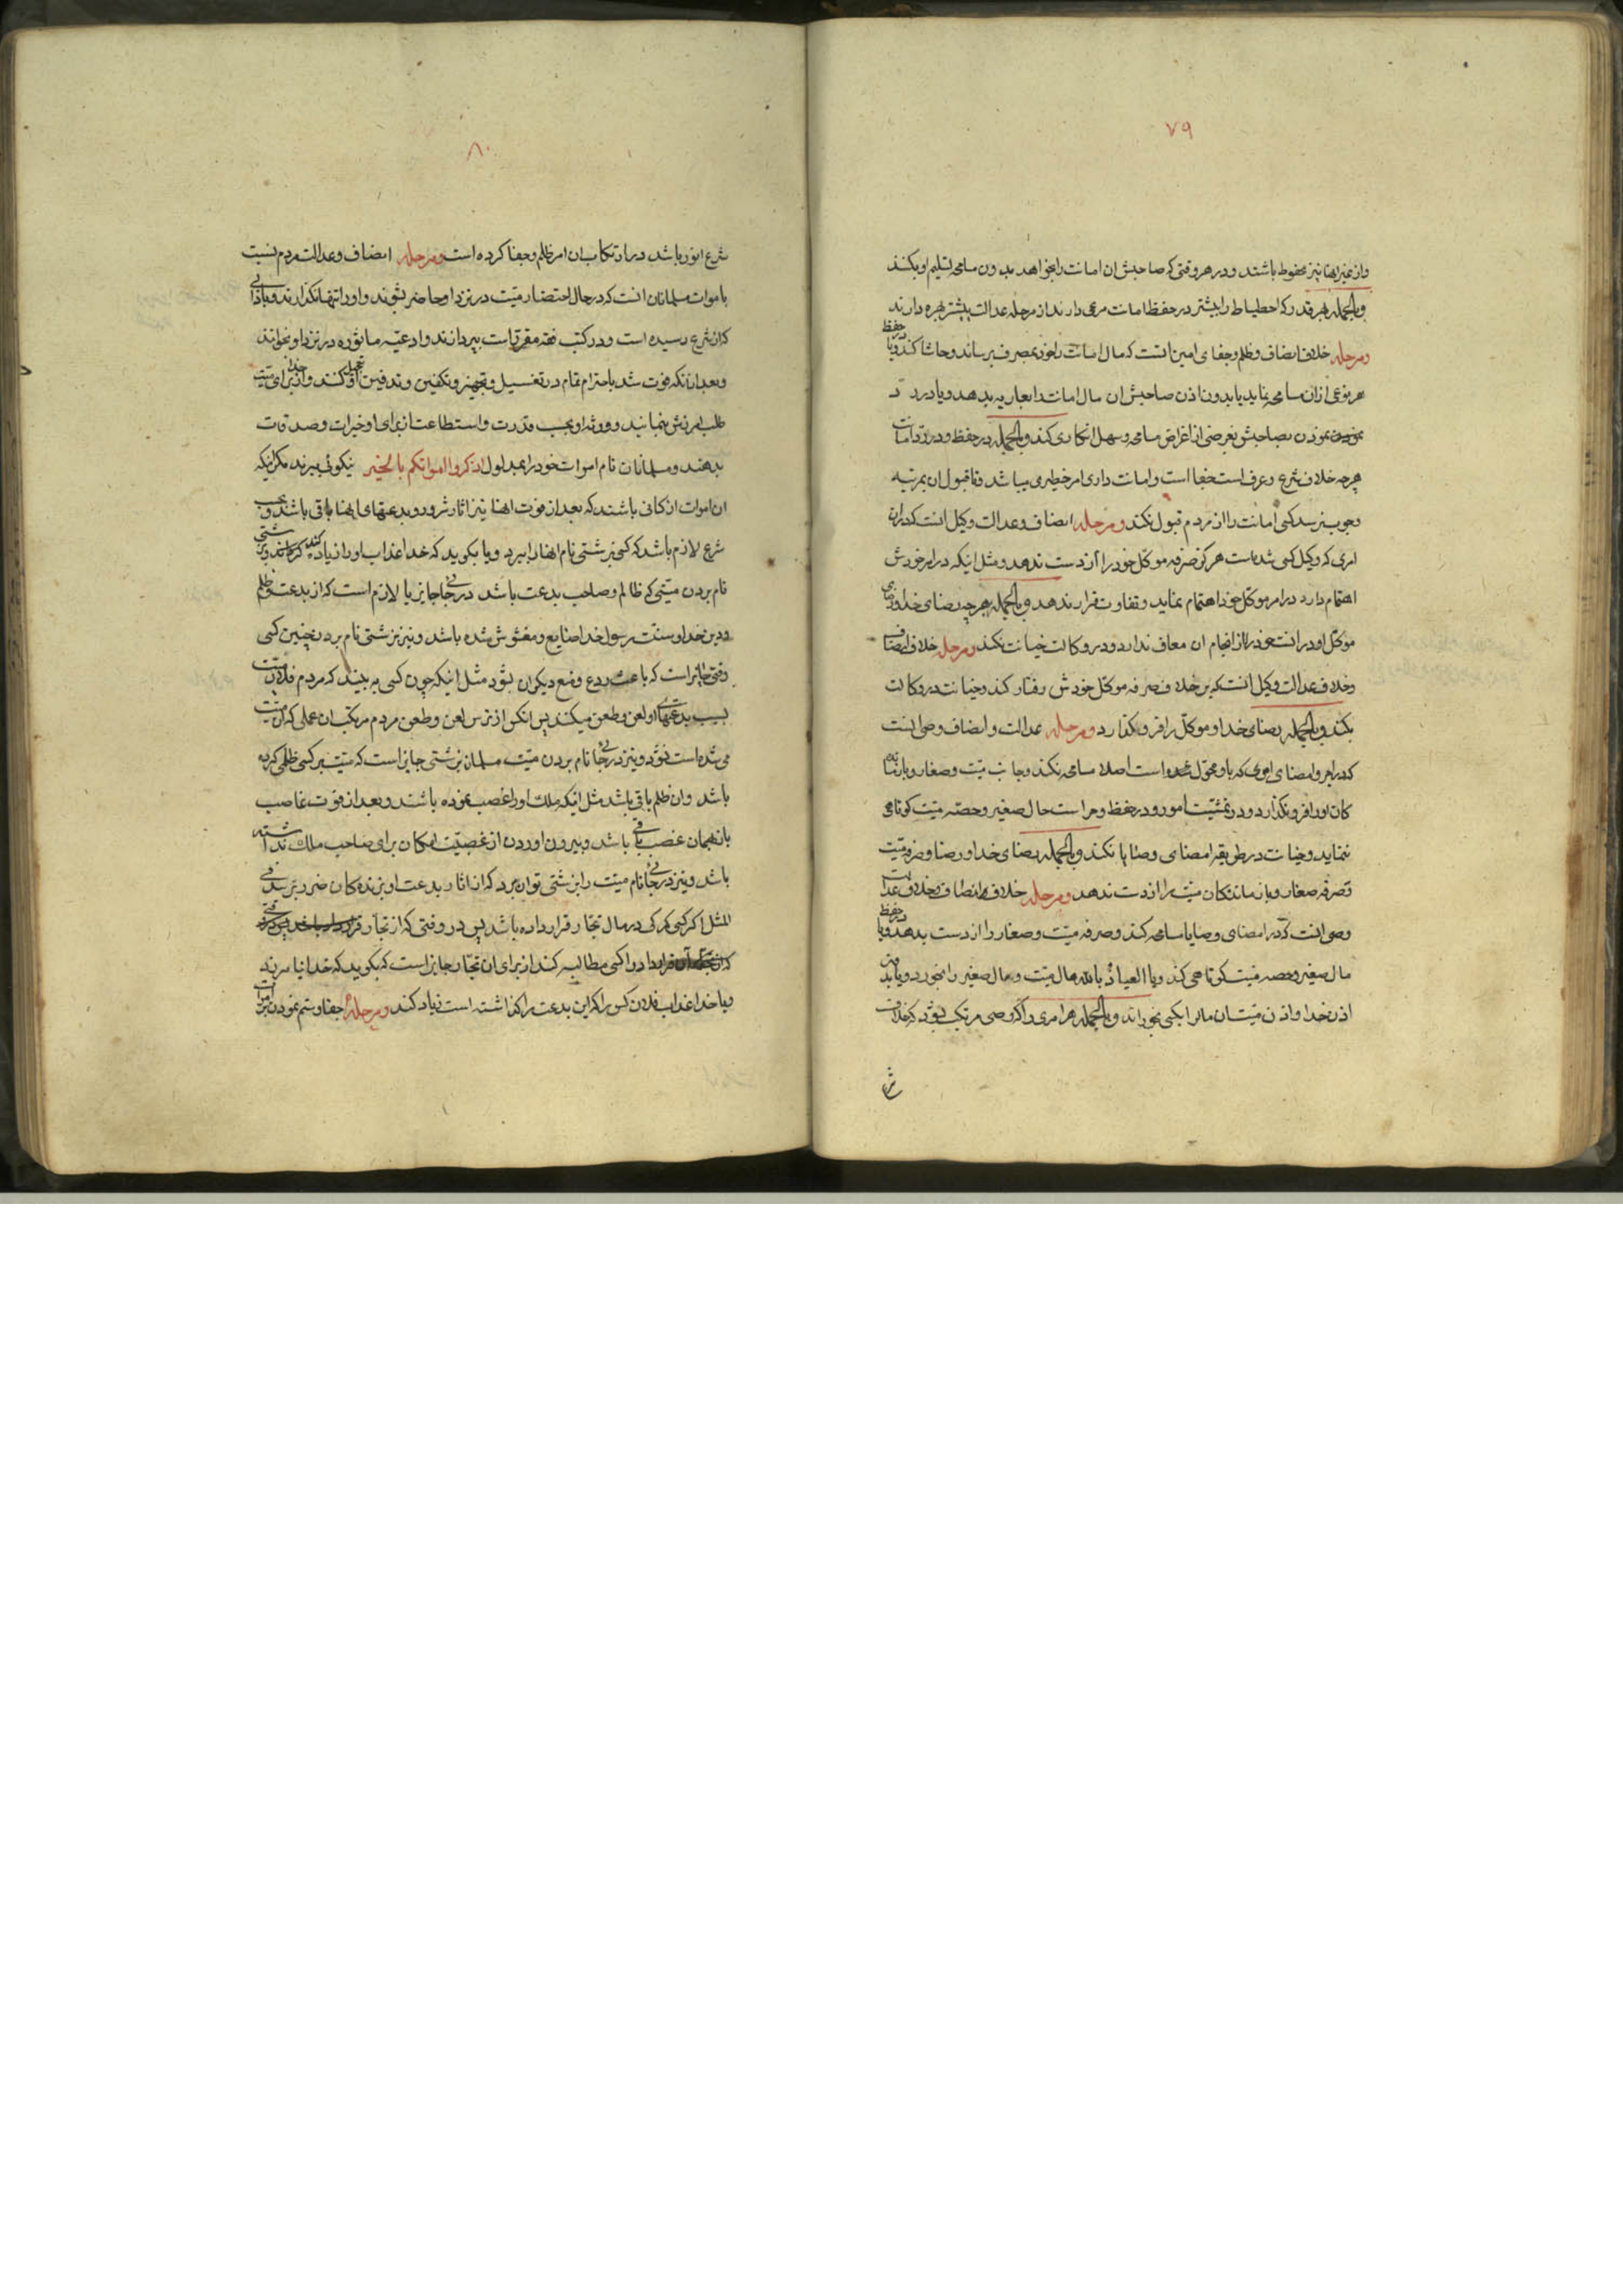 ۷۹
واز غیر اینها نیز محفوظ باشند و در هر وقتی که صاحبش ان امانت را بخواهد بدون مسامحه تسلیم او بکنند
وبالجمله هر قدر که احطیاط را بیشتر در حفظ امانت مرعی دارند از مرحله عدالت بیشتر بهره دارند
ومرحله خلاف انصاف وظلم وجفای امین انست که مال امانت را خود بمصرف برساند وحاشا کند ویا در حفظ
هر نوعی ازان مسامحه نماید یا بدون اذن صاحبش ان مال امانت را بعاریه بدهد ویا در رد
نمودن بصاحبش بغرضی از اغراض مسامحه وسهل انکاری کند وبالجمله در حفظ ودر رد امانت
هرچه خلاف شرع وعرف است جفا است وامانت داری امر خطیری میباشد وتا قبول ان بمرتبه
وجوب نرسد کسی امانت را از مردم قبول نکند ومرحله انصاف وعدالت وکیل انست که دران
امری که وکیل کسی شده است هرکز صرفه موکل خود را از دست ندهد ومثل اینکه در امر خودش
اهتمام دارد در امر موکل خود اهتمام نماید وتفاوت قرار ندهد وبالجمله هرچه رضای خدا ورضای
موکل او در انست خود را از انجام ان معاف ندارد ودر وکالت خیانت نکند ومرحله خلاف انصاف
وخلاف عدالت وکیل انست که بر خلاف صرفه موکل خودش رفتار کند وخیانت در وکالت
بکند وبالجمله رضای خدا وموکل را فروبکذارد ومرحله عدالت وانصاف وصی انست
که در امر وامضای اموری که باو محول شده است اصلا مسامحه نکند وجانب میت وصغار وبازماند
کان او را فرو نکذارد ودر تمشیت امور ودر حفظ وحراست حال صغیر وحصه میت کوتاهی
ننماید وخیانت در طریقه امضای وصایا نکند وبالجمله رضای خدا ورضا وصرفه میت
وصرفه صغار وبازماندکان میت را از دست ندهد ومرحله خلاف انصاف وخلاف عدالت
وصی انست که در امضای وصایا مسامحه کند وصرفه میت وصغار را از دست بدهد ویا در حفظ
مال صغیر وحصه میت کوتاهی کند ویا العیاذ بالله مال میت ومال صغیر را بخورد ویا بدون
اذن خدا واذن میت ان مال را بکسی بخوراند وبالجمله هر امری را که وصی مرتکب بشود که خلاف
شرع
۸۰
شرع انور باشد در ارتکاب ان امر ظلم وجفا کرده است ومرحله انصاف وعدالت مردم نسبت
باموات مسلمانان انست که در حال احتضار میت در نزد او حاضر بشوند واو را تنها نکذارند وباداب
که از شرع رسیده است ودر کتب فقه مقرر است بپردازند وادعیه ماثوره در نزد او بخوانند
وبعد ازانکه فوت شد باحترام تمام در تغسیل وتجهیز وتکفین وتدفین او تعجیل کنند واز خدا برای میت
طلب امرزش بنمایند وورثه او بحسب قدرت واستطاعت از برای او خیرات وصدقات
بدهند ومسلمانان نام اموات خود را بمدلول اذکروا امواتکم بالخیر نیکوئی ببرند مکر اینکه
ان اموات از کسانی باشند که بعد از فوت انها نیز اثار شرور وبدعتهای انها باقی باشد وبحسب
شرع لازم باشد که کسی بزشتی نام انها را ببرد ویا بکوید که خدا عذاب او را زیاد کند
نام بردن میتی که ظالم وصاحب بدعت باشد در جائی جایز یا لازم است که از بدعت وظلم
ودین خدا وسنت رسول خدا ضایع ومغشوش شده باشد ونیز بزشتی نام بردن چنین کسی
وقتی جایز است که باعث ردع ومنع دیکران بشود مثل اینکه چون کسی به بیند که مردم فلان میت
بسبب بدعتهای او لعن وطعن میکنند پس انکس از ترس لعن وطعن مردم مرتکب ان عملی که ان میت
می شده است نشود ونیز در جائی نام بردن میت مسلمان بزشتی جایز است که میت بر کسی ظلمی کرده
باشد وان ظلم باقی باشد مثل اینکه ملک او را غصب نموده باشند وبعد از فوت غاصب
باز همان غصب باقی باشد وبیرون اوردن از غصبیت امکان برای صاحب ملک نداشته
باشد ونیز در جائی نام میت را بزشتی توان برد که از اثار بدعت او بزنده کان ضرر برسد
المثل اکر کسی کمرکی در مال تجار قرار داده باشد پس در وقتی که از تجار
را کسی مطالبه کند از برای ان تجار جایز است که بکوید که خدا نیامرزد
ویا خدا عذاب فلان کس را که این بدعت را کذاشته است زیاد کند ومرحله جفا وستم نمودن